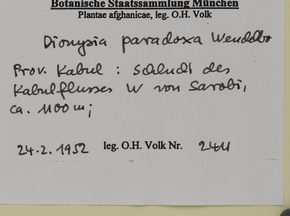 Botanische Staatssammlung München
Plantae afghanicae, leg. O.H. Volk
Dionysia paradoxa Wendelbo
Prov. Kabul : Schlucht des
Kabulflusses W von Sarobi,
ca. 1100 m;
24.2. 1952 leg. O.H. Volk Nr. 2411